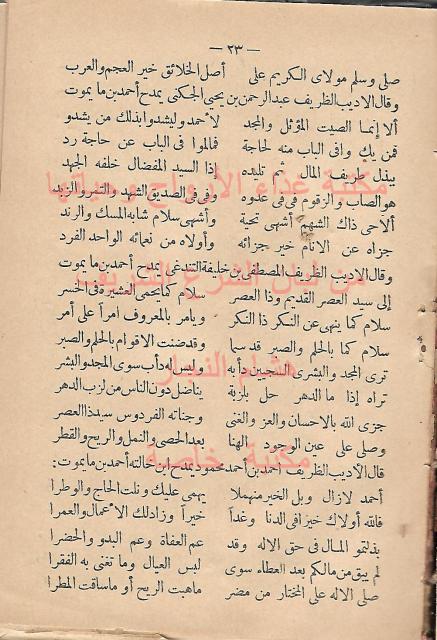 — ٢٣ —
صلى وسلم مولاى الكريم على أصل الخلائق خير العجم والعرب
وقال الاديب الظريف عبد الرحمن بن يحيى الجكنى يمدح أحمد بن ما يموت
ألا إنما الصيت المؤثل والمجد لأحمد وليشدو ابذلك من يشدو
فمن يك وافى الباب منه لحاجة فالموا فى الباب عن حاجة رد
يبذل طريف المال ثم تليده إذا السيد المفضال خلفه الجهد
هو الصاب والزقوم فى فى عدوه وفى فى الصديق الشهد والتمر والزبد
ألا حى ذاك الشهم أشهى تحية وأشهى سلام شابه المسك والرند
جزاه عن الانام خير جزائه وأولاه من نعمائه الواحد الفرد
وقال الاديب الظريف المصطفى بن خليفة التندغى يمدح أحمد بن ما يموت
إلى سيد العصر القديم وذا العصر سلام كما يحمى العشيرة فى الخسر
سلام كما ينهى عن النكر ذا النكر ويامر بالمعروف امرأ على أمر
سلام كما بالحلم والصبر قد سما وقد ضنت الاقوام بالحلم والصبر
ترى المجد والبشرى النجيين دأبه وليس له دأب سوى المجد والبشر
تراه إذا ما الدهر حل بلزبة يناضل دون الناس من لزب الدهر
جزى الله بالاحسان والعز والغنى وجناته الفردوس سيد ذا العصر
وصلى على عين الوجود الهنا بعد الحصى والنمل والريح والقطر
قال الأديب الظريف أحمد بن أحمد محمود يمدح بن خالته أحمد بن ما يموت :
أحمد لا زال وبل الخير منهملا يهمى عليك ونلت الحاج والوطرا
فالله أولاك خيرا فى الدنا وغداً خيراً وزاد لك الأعمال والعمرا
بذلتمو المال فى حق الاله وقد عم العفاة وعم البدو والحضرا
لم يبق من مالكم بعد العطاء سوى لبس العيال وما تغنى به الفقرا
صلى الاله على المختار من مضر ماهبت الريح أو ماساقت المطرا
مكتبة غذاء الأرواح
من لبان الشرع الشريف
هشام النجار
مكتبة خاصة